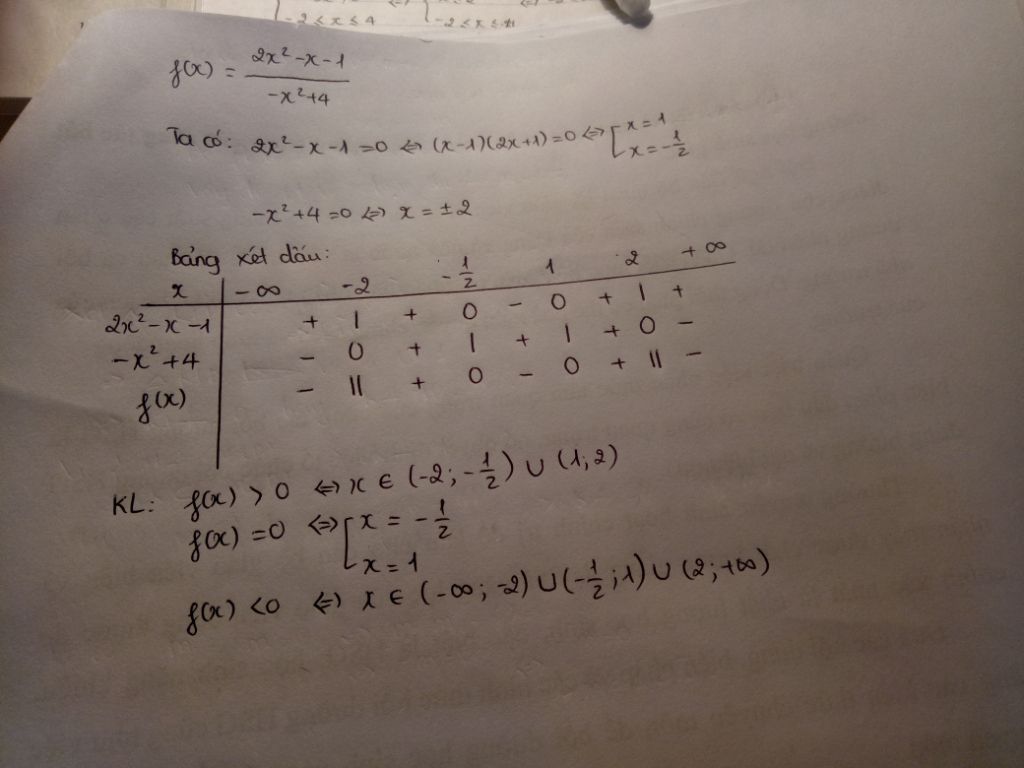 -2 ≤ x ≤ 4
f(x) = (2x² - x - 1)/(-x² + 4)
Ta có: 2x² - x - 1 = 0 ⇔ (x-1)(2x+1) = 0 ⇔ [ x = 1
x = -1/2
-x² + 4 = 0 ⇔ x = ±2
Bảng xét dấu:
x | -∞ -2 -1/2 1 2 +∞
2x² - x - 1 | + | + 0 - 0 + | +
-x² + 4 | - 0 + | + | + 0 -
f(x) | - || + 0 - 0 + || -
KL: f(x) > 0 ⇔ x ∈ (-2; -1/2) ∪ (1; 2)
f(x) = 0 ⇔ [ x = -1/2
x = 1
f(x) < 0 ⇔ x ∈ (-∞; -2) ∪ (-1/2; 1) ∪ (2; +∞)